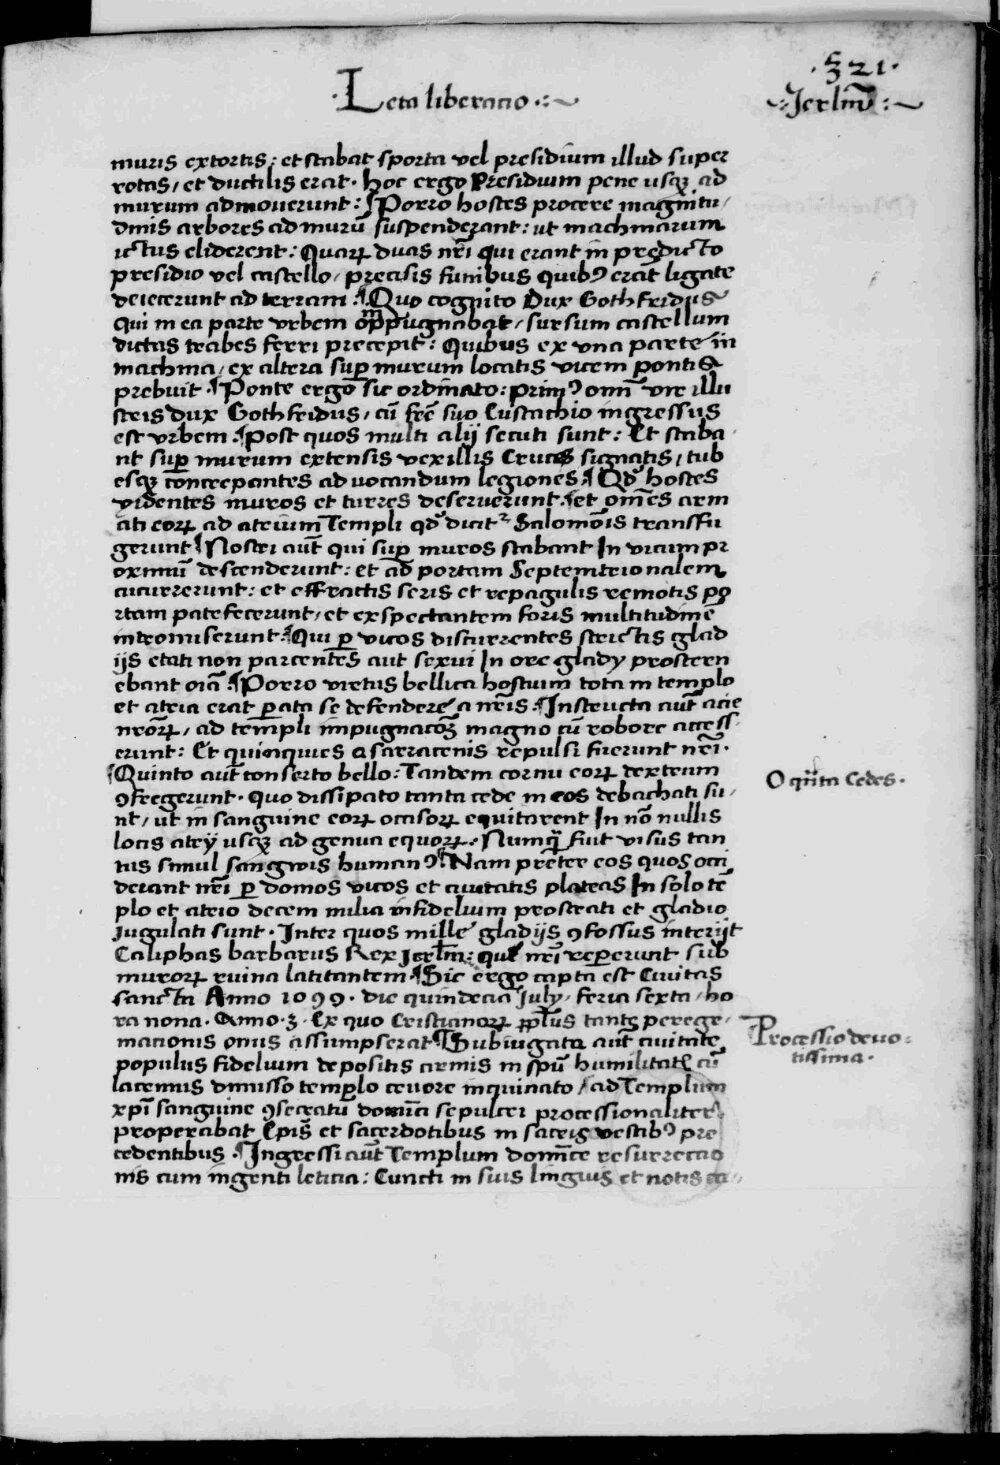 ·321·
·Leta liberacio·:~
~:Jerl'm̄:~
muris extortis: et stabat sporta vel presidium illud super
rotas, et ductilis erat. hoc ergo Presidium pene usqꝫ ad
murum admoverunt: ¶Porro hostes procere magnitu/
dinis arbores ad murū suspenderant: ut machinarum
ictus eliderent: Quarꝝ duas nr̄i qui erant in predicto
presidio vel castello, precisis funibus quibꝰ erāt ligate
deiecerunt ad terram: ¶Quo cognito Dux Gothfridus
qui in ea parte vrbem oppugnabat, sursum castellum
dictas trabes ferri precepit: Quibus ex vna parte in
machina, ex altera suꝑ murum locatis vicem pontis
prebuit. ¶Ponte ergo sic ordinato: primꝰ om̄i vir illu
stris dux Gothfridus, cū fr̄e suo Eustachio ingressus
est vrbem. ¶Post quos multi alij secuti sunt: Et staba
nt suꝑ murum extensis vexillis Crucis signatis, tub
esqꝫ concrepantes advocandum legiones. ¶Qd' hostes
videntes muros et turres deseruerunt. ¶et om̄es arm
ati eorꝝ ad atrium Templi qd' dicit' Salomōis transfu
gerunt ¶Nostri aūt qui suꝑ muros stabant In vicum pr
oximū descenderunt: et ad portam Septemtrionalem
cucurrerunt: et effractis seris et repagulis remotis po
rtam patefecerunt, et exspectantem foris multitudinē
intromiserunt. ¶Qui ꝑ vicos discurrentes strictis glad
ijs etati non parcentes aut sexui In ore glady prostern
ebant oīa. ¶Porro virtus bellica hostium tota in templo
et atria erat ꝑata se defendere a nr̄is. ¶Instructa aūt acie
nr̄orꝝ, ad templi impugnacōꝫ magno cū robore access
erunt: Et quinquies a sarracenis repulsi fuerunt nr̄i.
¶Quinto aūt conserto bello: Tandem cornu eorꝝ dextrum
ꝯfregerunt. quo dissipato tanta cede in eos debachati su/
nt, ut in sanguine eorꝝ occisorꝝ equitarent In nō nullis
locis atrij usqꝫ ad genua equorꝝ. Numq̄ fuit visus tan
tus simul sangwis humanꝰ. ¶Nam preter eos quos occi
derant nr̄i ꝑ domos vicos et civitatis plateas In solo tē
plo et atrio decem milia infidelium prostrati et gladio
iugulati sunt. Inter quos mille gladijs ꝯfossus interijt
Caliphas barbarus Rex Jerl'm: quē nr̄i repererunt sub
murorꝝ ruina latitantem. ¶Sic ergo capta est Civitas
sancta Anno 1099. die quindecia July, feria sexta, ho
ra nona. Anno ·3· Ex quo Cristianorꝝ ppl'us tante peregr/
inacionis onus assumpserat. ¶Subiugata aūt civitate
populus fidelium depositis armis in spū humilitatꝭ cū
lacrimis dimisso templo cruore inquinato, ad Templum
xp̄i sanguine ꝯsecratū domīci sepulcri processionaliter
properabat Ep̄is et sacerdotibus in sacris vestibꝰ pre
cedentibus. ¶Ingressi aūt Templum domīce resurrectio
nis cum ingenti leticia: Cuncti in suis linguis et notis
O qn̄ta Cedes.
Processio devo=
tissima.